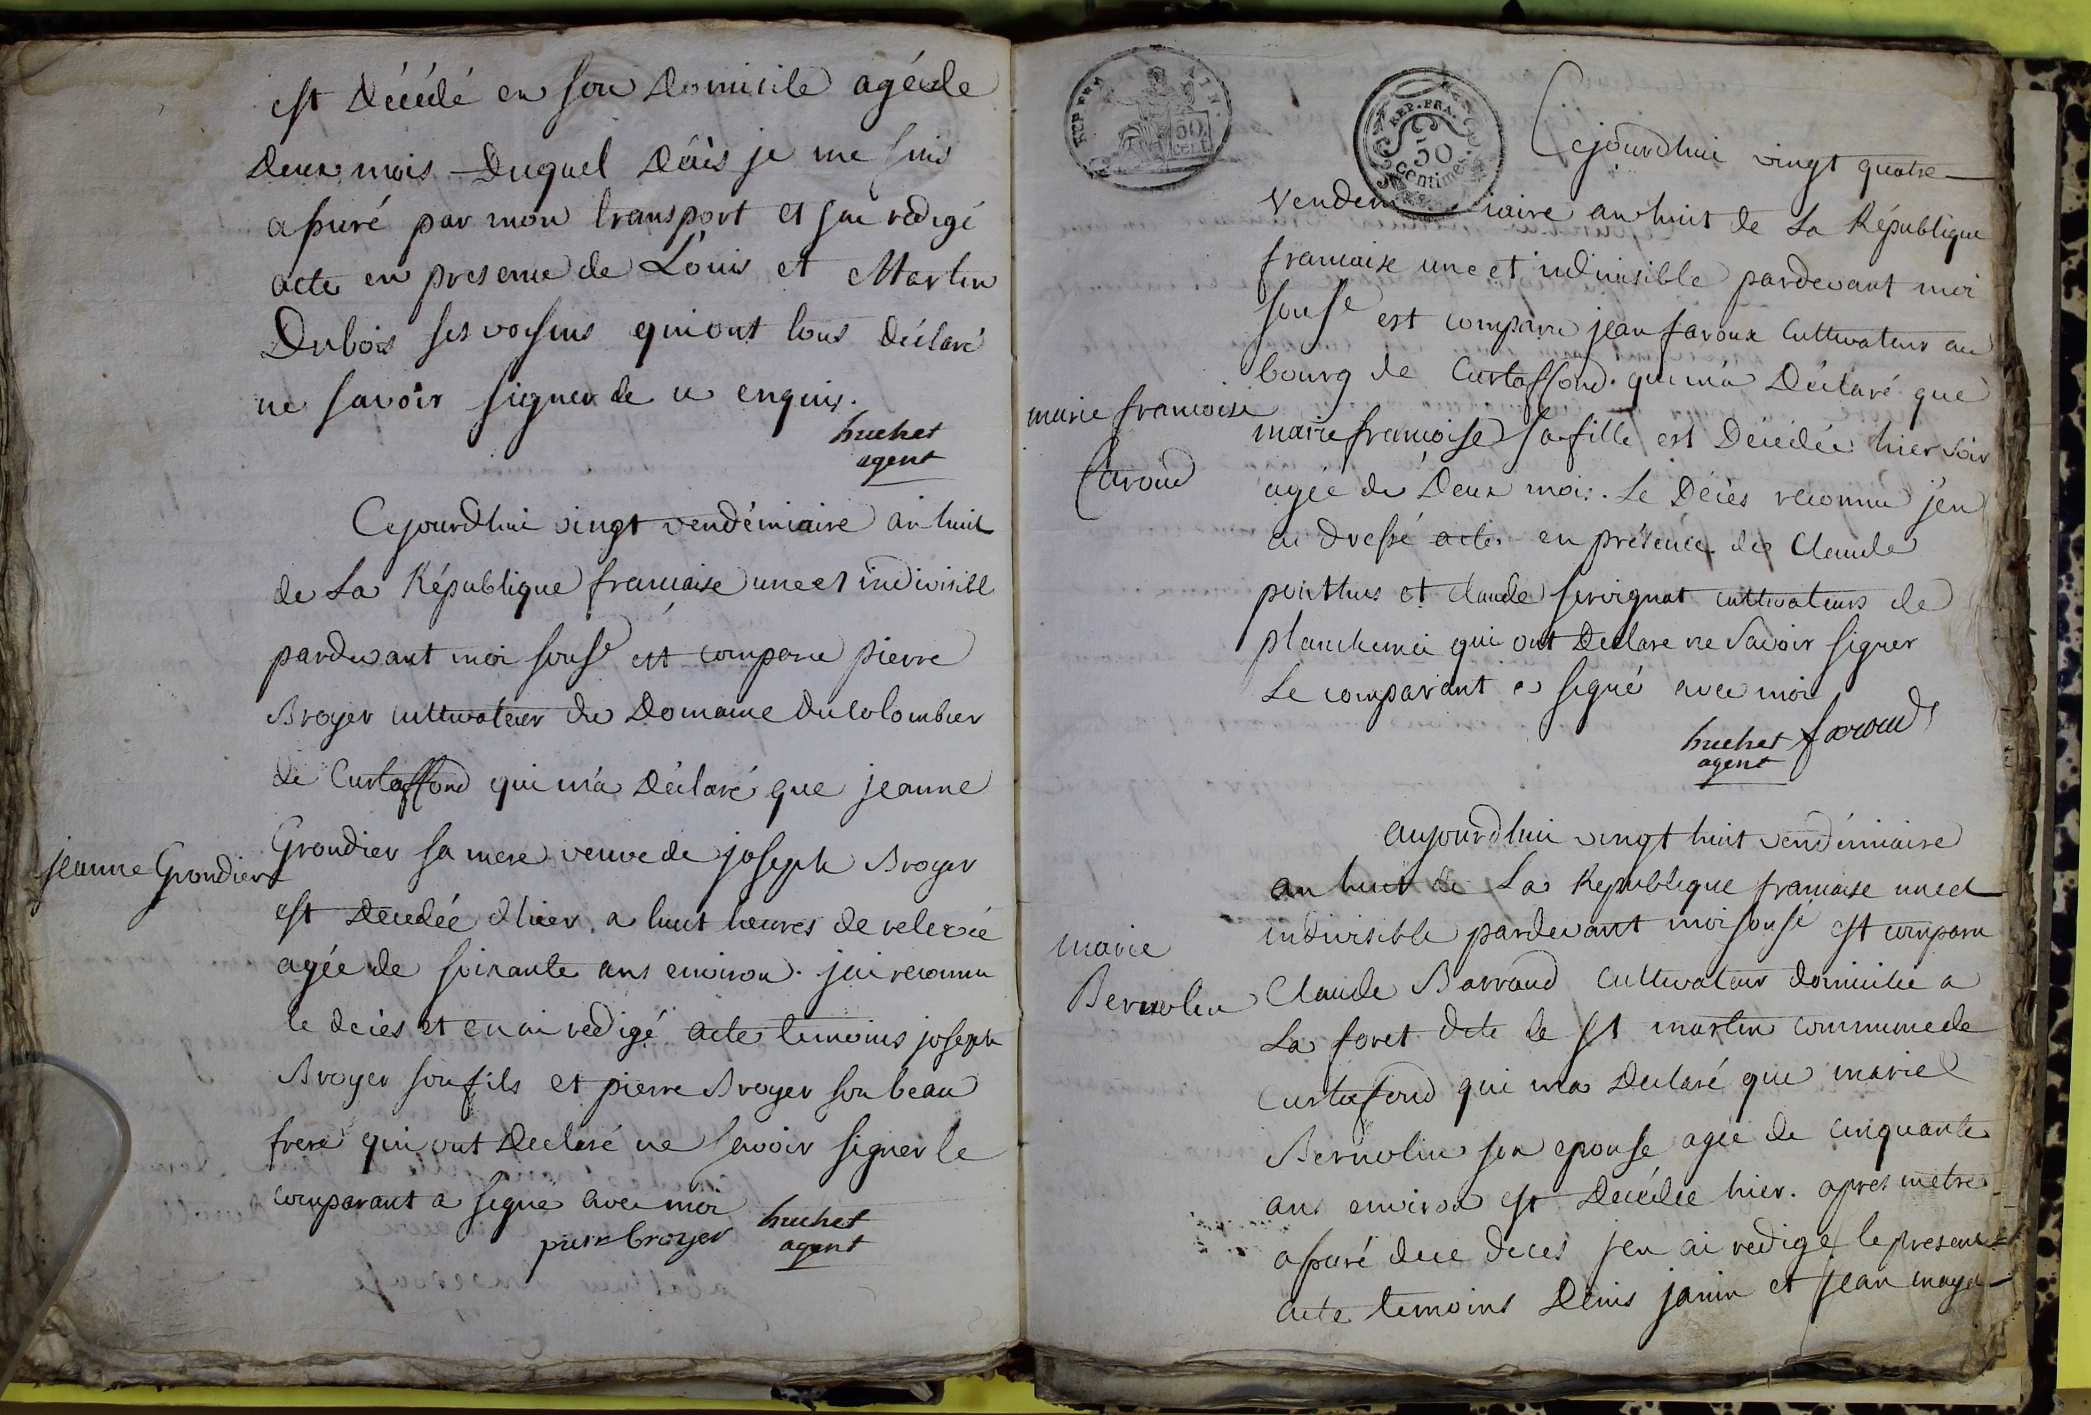 est Décédé en son Domicile agé de
Deux mois Duquel Décès je me suis
assuré par mon transport et j'ai redigé
acte en presence de Louis et Martin
Dubois ses voisins qui ont tous déclaré
ne savoir signer de ce enquis.
huchet
agent
Cejourdhui vingt vendémiaire an huit
de La République francaise une et indivisible
pardevant moi sousé est comparu pierre
Broyer cultivateur du Domaine du Colombier
de Curtaffond qui m'a Déclaré que jeanne
jeanne Grondier
Grondier sa mere veuve de joseph Broyer
est Decedée d'hier a huit heures de relevée
agée de soixante ans environ. j'ai reconnu
le décès et en ai redigé acte temoins joseph
Broyer son fils et pierre Broyer son beau
frere qui ont Declaré ne savoir signer le
comparant a signé avec moi
pierr broyer
huchet
agent
REP. FRA.
AIN.
50
cent
REP. FRA.
50
Centimes.
Cejourdhui vingt quatre
vendem iaire an huit de La République
francaise une et indivisible pardevant moi
sousé est comparu jean faroux cultivateur au
bourg de Curtaffond. qui m'a Déclaré que
marie francoise
faroud
marie françoise sa fille est Décédée hier soir
agée de Deux mois. Le Décès reconnu j'en
ai dressé acte en présence de Claude
ponthus et claude servignat cultivateurs de
planchemei qui ont Declare ne savoir signer
Le comparant a signé avec moi
huchet
agent
faroud
aujourdhui vingt huit vendémiaire
an huit de La Republique francaise une et
indivisible pardevant moi sousé est comparu
marie
Bernolin
Claude Barraud cultivateur domicilie a
La foret dite de st martin commune de
Curtafond qui ma Declaré que marie
Bernolin son epouse agée de cinquante
ans environ est Décédée hier. apres metre
assuré dece deces j'en ai redigé le present
acte temoins Denis janin et jean maya